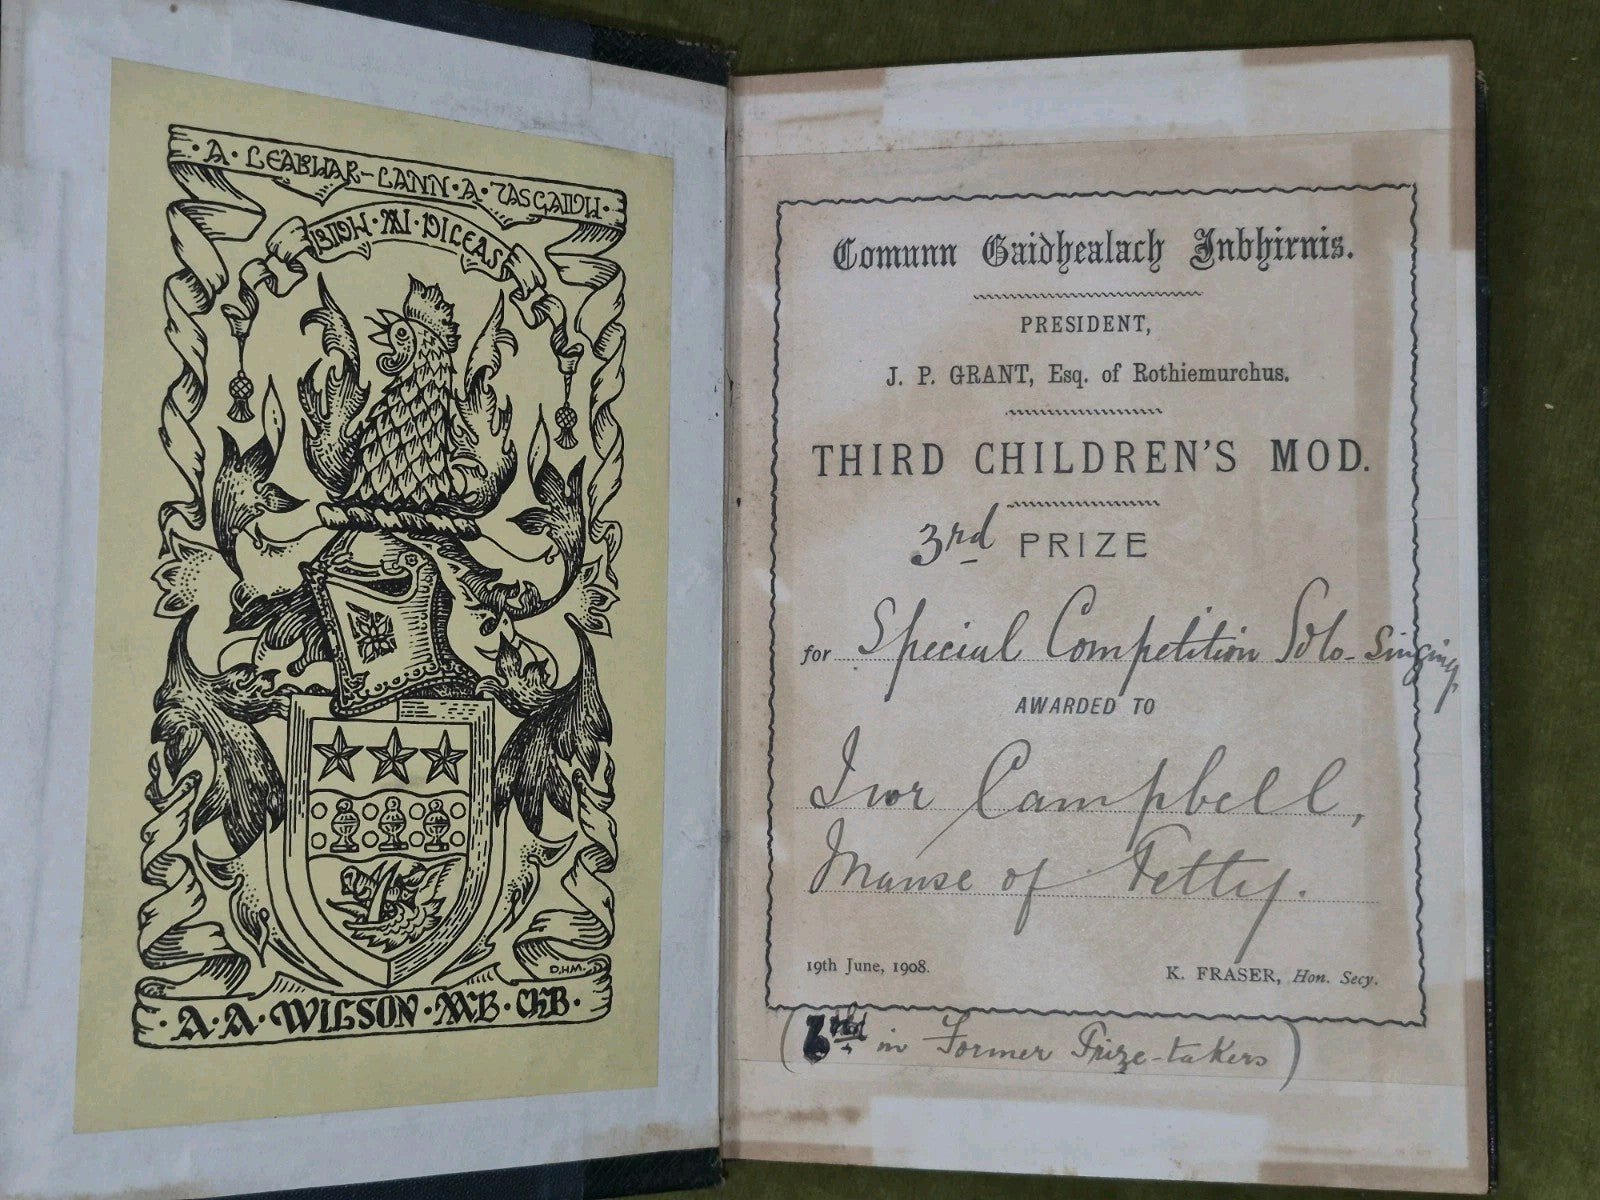 · A · LEABHAR-LANN · A · TASGAIDH ·
BIDH · MI · DILEAS
D.H.M.
· A · A · WILSON · MB · CHB ·
Comunn Gaidhealach Inbhirnis.
PRESIDENT,
J. P. GRANT, Esq. of Rothiemurchus.
THIRD CHILDREN'S MOD.
3rd PRIZE
for Special Competition Solo-Singing
AWARDED TO
Ivor Campbell,
Manse of Petty.
19th June, 1908.
K. FRASER, Hon. Secy.
( in Former Prize-takers)